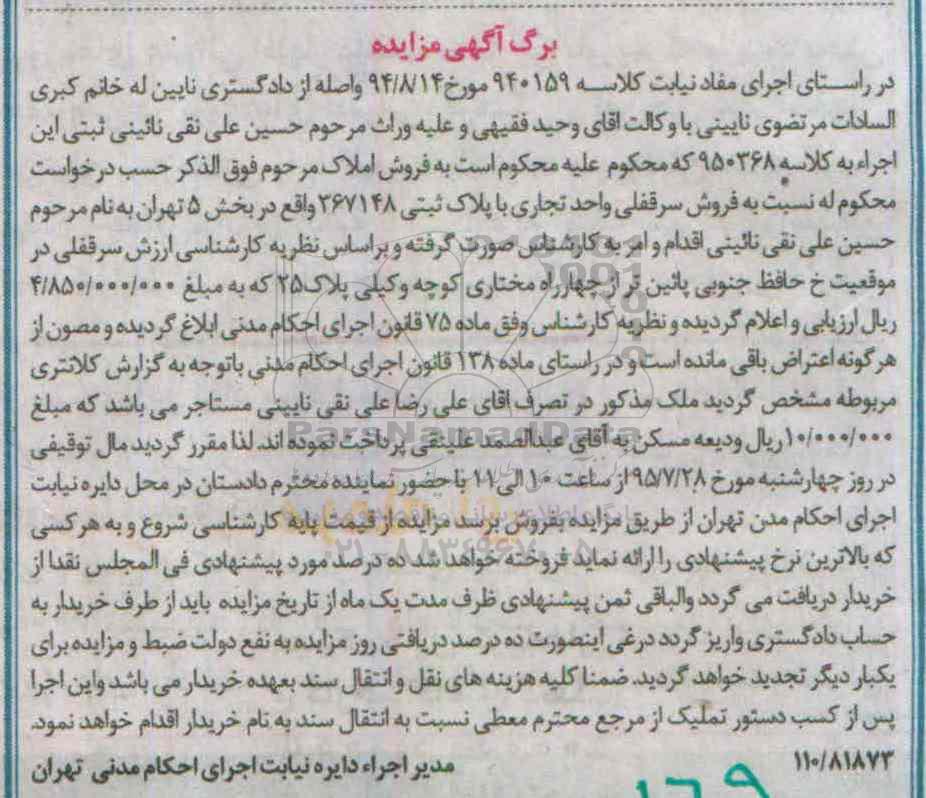 برگ آگهی مزایده
در راستای اجرای مفاد نیابت کلاسه ۹۴۰۱۵۹ مورخ ۹۴/۸/۱۴ واصله از دادگستری نایین له خانم کبری
السادات مرتضوی نایینی با وکالت اقای وحید فقیهی و علیه وراث مرحوم حسین علی نقی نائینی ثبتی این
اجراء به کلاسه ۹۵۰۳۶۸ که محکوم علیه محکوم است به فروش املاک مرحوم فوق الذکر حسب درخواست
محکوم له نسبت به فروش سرقفلی واحد تجاری با پلاک ثبتی ۳۶۷۱۴۸ واقع در بخش ۵ تهران به نام مرحوم
حسین علی نقی نائینی اقدام و امر به کارشناس صورت گرفته و براساس نظریه کارشناسی ارزش سرقفلی در
موقعیت خ حافظ جنوبی پائین تر از چهارراه مختاری کوچه وکیلی پلاک ۲۵ که به مبلغ ۴/۸۵۰/۰۰۰/۰۰۰
ریال ارزیابی و اعلام گردیده و نظریه کارشناس وفق ماده ۷۵ قانون اجرای احکام مدنی ابلاغ گردیده و مصون از
هر گونه اعتراض باقی مانده است و در راستای ماده ۱۳۸ قانون اجرای احکام مدنی باتوجه به گزارش کلانتری
مربوطه مشخص گردید ملک مذکور در تصرف اقای علی رضا علی نقی نایینی مستاجر می باشد که مبلغ
۱۰/۰۰۰/۰۰۰ ریال ودیعه مسکن به آقای عبدالصمد علینقی پرداخت نموده اند. لذا مقرر گردید مال توقیفی
در روز چهارشنبه مورخ ۹۵/۷/۲۸ از ساعت ۱۰ الی ۱۱ با حضور نماینده محترم دادستان در محل دایره نیابت
اجرای احکام مدن تهران از طریق مزایده بفروش برسد مزایده از قیمت پایه کارشناسی شروع و به هر کسی
که بالاترین نرخ پیشنهادی را ارائه نماید فروخته خواهد شد ده درصد مورد پیشنهادی فی المجلس نقدا از
خریدار دریافت می گردد والباقی ثمن پیشنهادی ظرف مدت یک ماه از تاریخ مزایده باید از طرف خریدار به
حساب دادگستری واریز گردد درغی اینصورت ده درصد دریافتی روز مزایده به نفع دولت ضبط و مزایده برای
یکبار دیگر تجدید خواهد گردید. ضمنا کلیه هزینه های نقل و انتقال سند بعهده خریدار می باشد واین اجرا
پس از کسب دستور تملیک از مرجع محترم معطی نسبت به انتقال سند به نام خریدار اقدام خواهد نمود.
۱۱۰/۸۱۸۷۳ مدیر اجراء دایره نیابت اجرای احکام مدنی تهران
ParsNamadData
۰۲۱-۸۸۳۴۹۶۷۰-۵